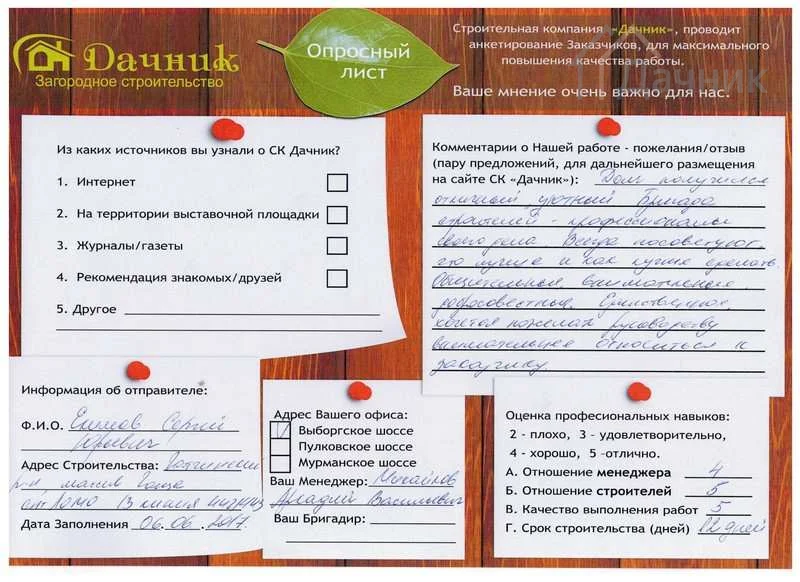 Дачник
Загородное строительство
Опросный
лист
Строительная компания «Дачник», проводит
анкетирование Заказчиков, для максимального
повышения качества работы.
Ваше мнение очень важно для нас.
Дачник
Из каких источников вы узнали о СК Дачник?
1. Интернет
2. На территории выставочной площадки
3. Журналы/газеты
4. Рекомендация знакомых/друзей
5. Другое
Комментарии о Нашей работе - пожелания/отзыв
(пару предложений, для дальнейшего размещения
на сайте СК «Дачник»): Дом получился
отличный, уютный. Бригада
строителей - профессионалы
своего дела. Всегда посоветуют,
что лучше и как лучше сделать.
Общительные, внимательные,
добросовестные. Единственное,
хочется пожелать руководству
внимательнее относиться к
заказчику.
Информация об отправителе:
Ф.И.О. Сергей
Юрьевич
Адрес Строительства: Гатчинский
р-н массив
13 линия
Дата Заполнения 06.06.2017.
Адрес Вашего офиса:
Выборгское шоссе
Пулковское шоссе
Мурманское шоссе
Ваш Менеджер: Михайлов
Аркадий Васильевич
Ваш Бригадир:
Оценка профессиональных навыков:
2 - плохо, 3 - удовлетворительно,
4 - хорошо, 5 -отлично.
А. Отношение менеджера 4
Б. Отношение строителей 5
В. Качество выполнения работ 5
Г. Срок строительства (дней) 12 дней